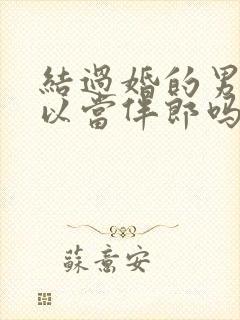 結過婚的男
以當伴郎嗎
蘇意安